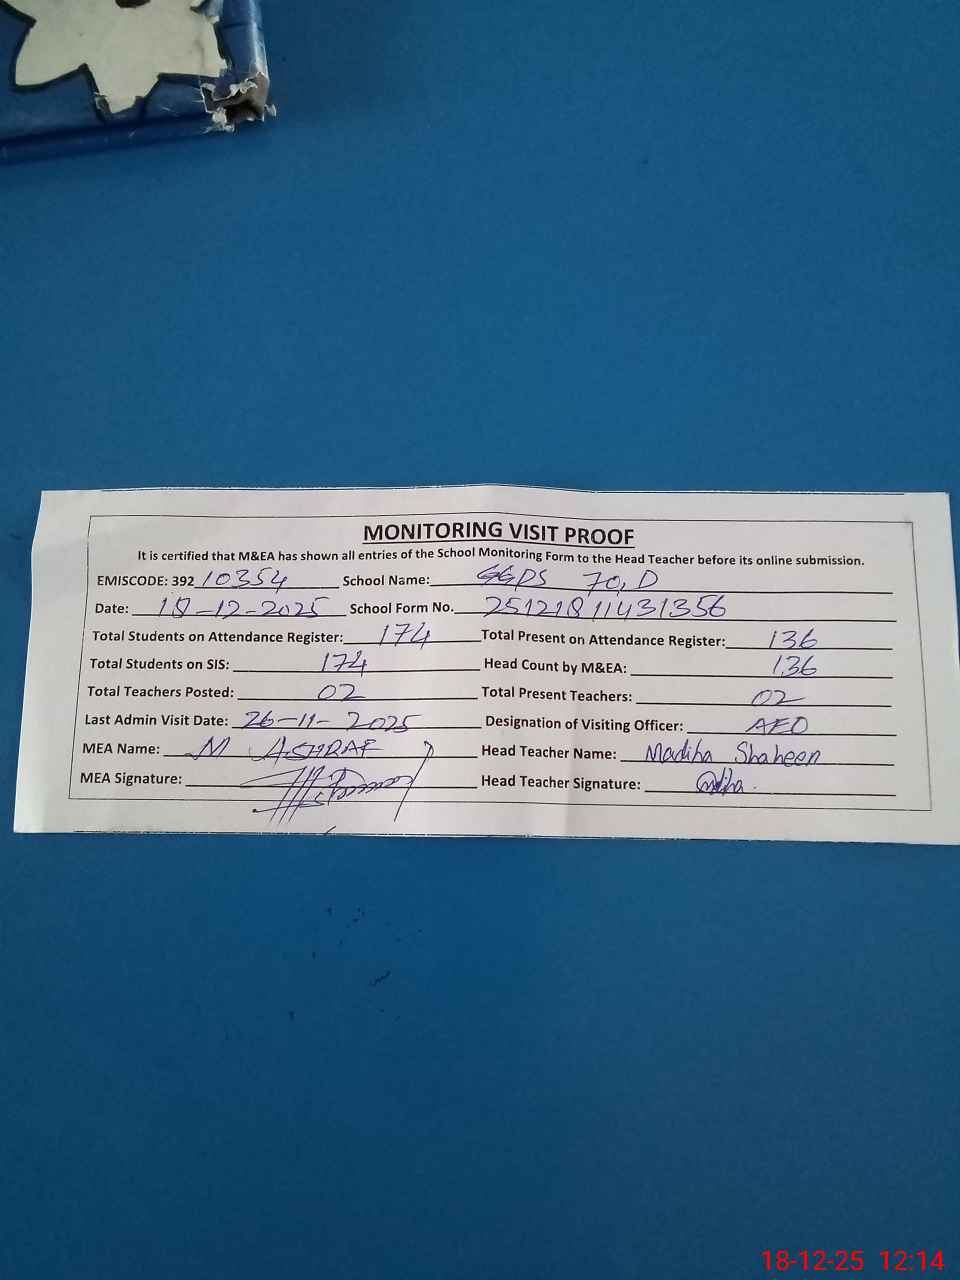 MONITORING VISIT PROOF
It is certified that M&EA has shown all entries of the School Monitoring Form to the Head Teacher before its online submission.
EMISCODE: 392 10354 School Name: GGPS 70, D
Date: 18-12-2025 School Form No. 25121811431356
Total Students on Attendance Register: 174 Total Present on Attendance Register: 136
Total Students on SIS: 174 Head Count by M&EA: 136
Total Teachers Posted: 02 Total Present Teachers: 02
Last Admin Visit Date: 26-11-2025 Designation of Visiting Officer: AEO
MEA Name: M ASHRAF Head Teacher Name: Madiha Shaheen
MEA Signature: Head Teacher Signature: Madiha
18-12-25 12:14